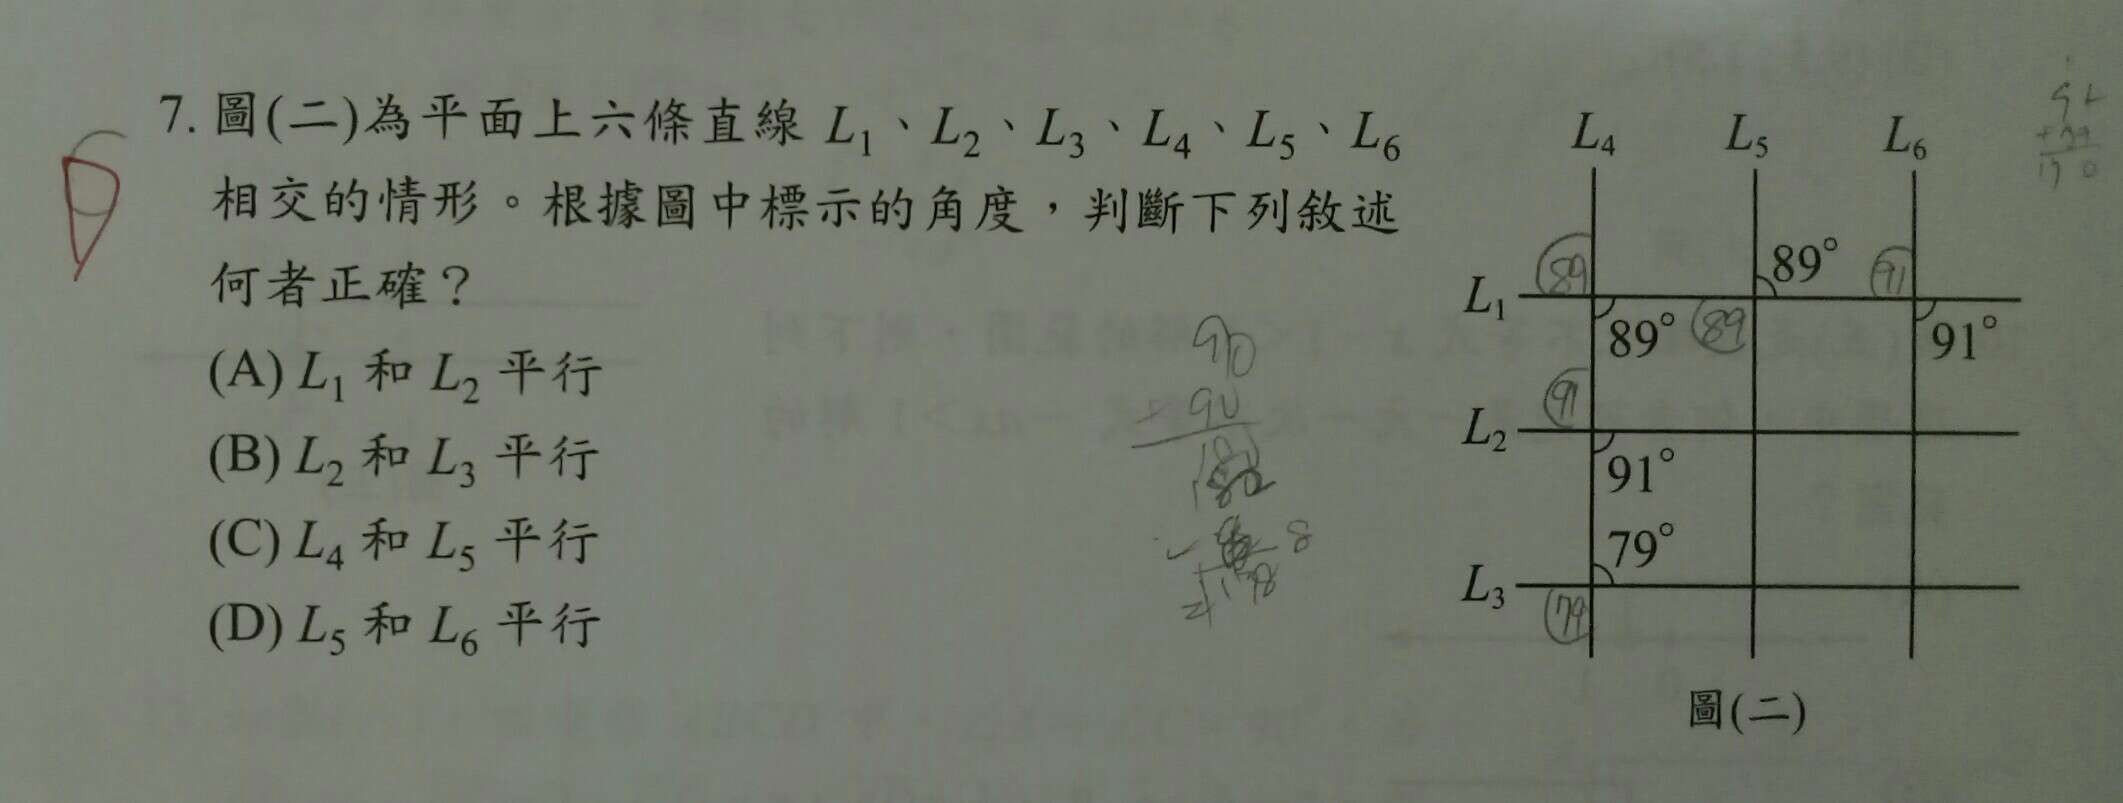 7. 圖(二)為平面上六條直線 L1、L2、L3、L4、L5、L6
相交的情形。根據圖中標示的角度，判斷下列敘述
何者正確？
(A) L1 和 L2 平行
(B) L2 和 L3 平行
(C) L4 和 L5 平行
(D) L5 和 L6 平行
D
L4 L5 L6
89 89° 91
L1
89° 89 91°
91
L2
91°
79°
L3
79
圖(二)
90